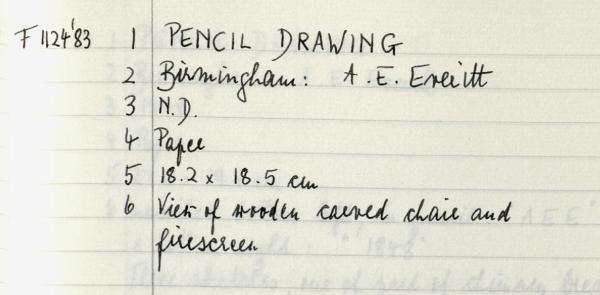 F 1124'83 1 PENCIL DRAWING
2 Birmingham: A.E. Everitt
3 N.D.
4 Paper
5 18.2 x 18.5 cm
6 View of wooden carved chair and
firescreen